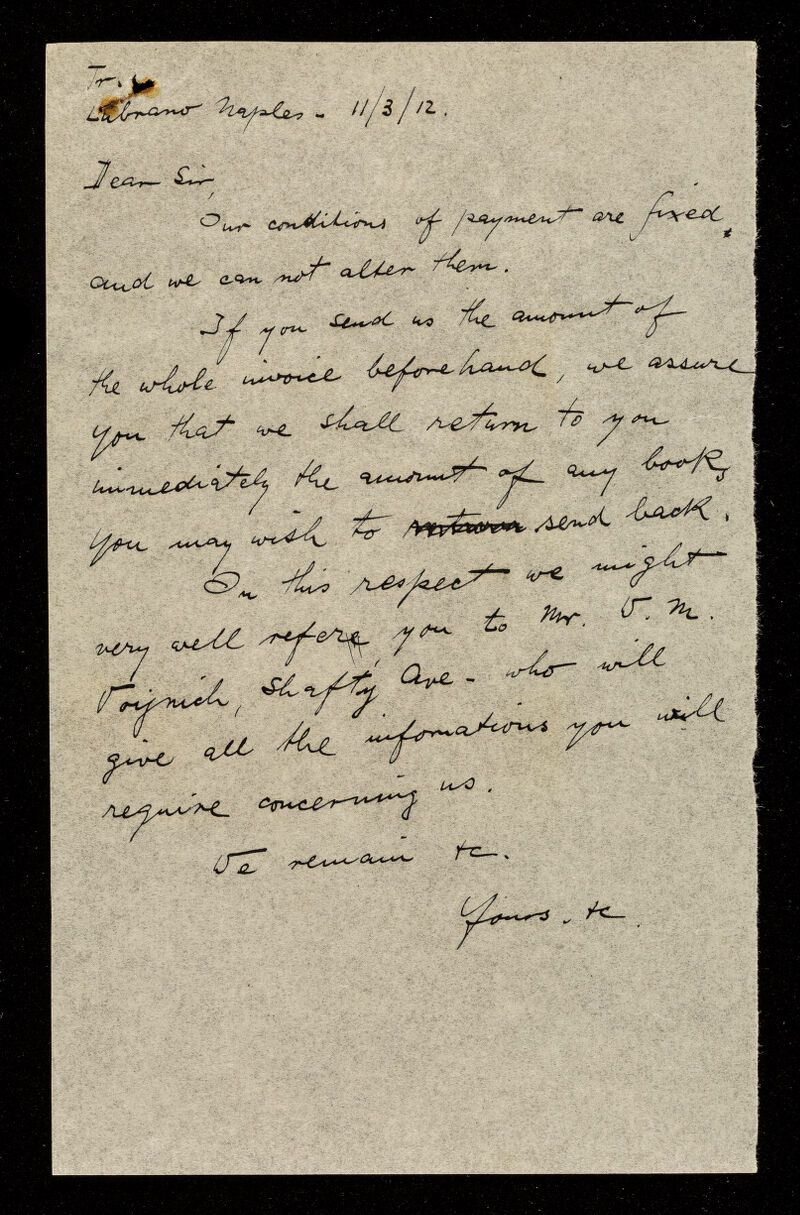 Tr.
Lubrano Naples - 11/3/12.
Dear Sir,
Our conditions of payment are fixed,
and we can not alter them.
If you send us the amount of
the whole invoice beforehand, we assure
you that we shall return to you
immediately the amount of any books
you may wish to return send back.
On this respect we might
very well refere you to Mr. V. M.
Voijnich, Shafty Ave - who will
give all the infomations you will
require concerning us.
We remain &c.
Yours. &c.